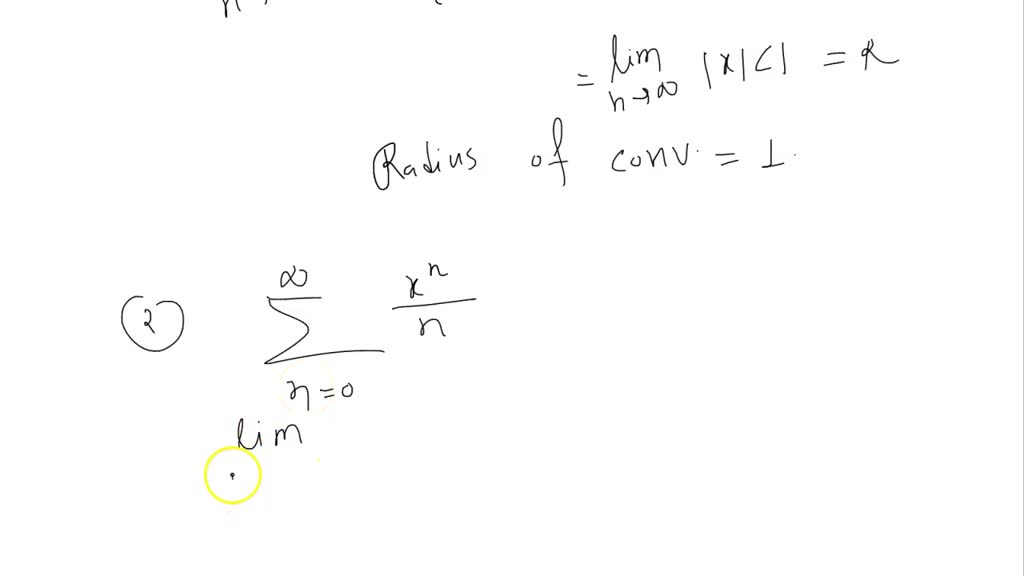 = lim n→∞ |x|<1 = R
Radius of conv. = 1.
2 ∞ ∑ n=0 xⁿ/n
lim